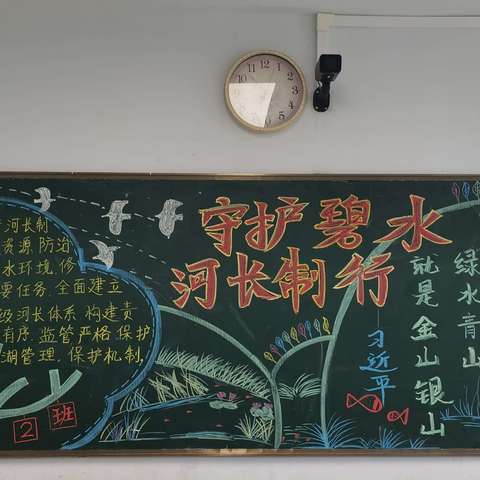 守护碧水
河长制行
河长制
资源,防治
水环境,修
要任务,全面建立
级河长体系,构建责
有序,监管严格,保护
湖管理,保护机制,
2班
绿水青山
就是金山银山
—习近平